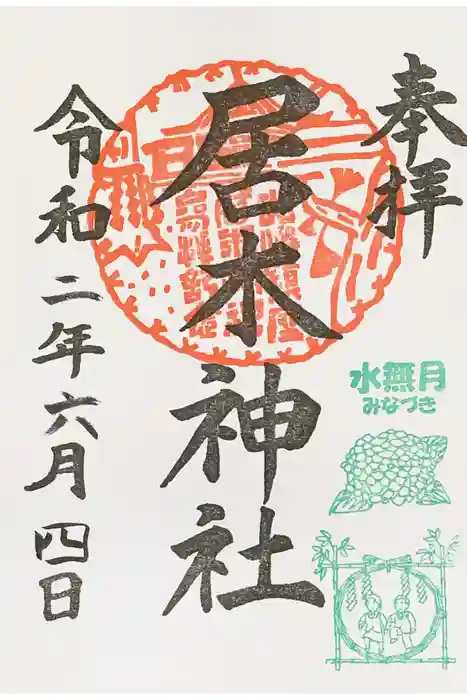 奉拝
水無月
みなづき
居木神社
令和二年六月四日